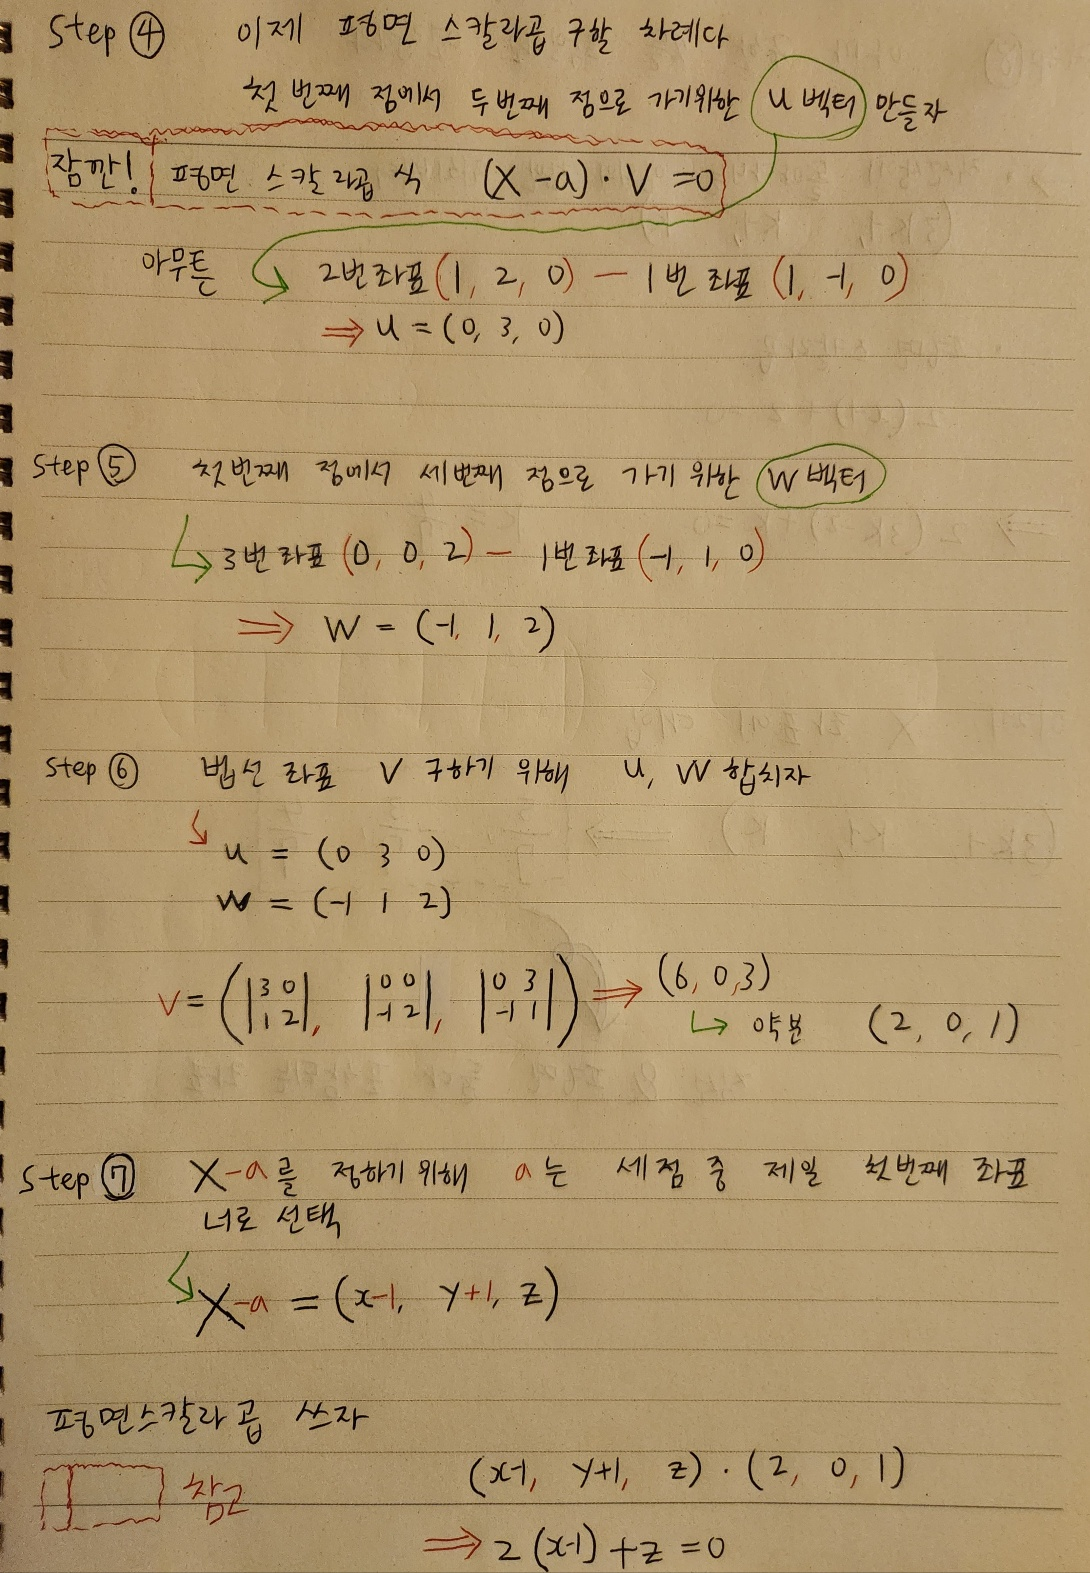 Step ④ 이제 평면 스칼라곱 구할 차례다
첫 번째 점에서 두번째 점으로 가기위한 U 벡터 만들자
잠깐! 평면 스칼라곱 식 (X-a)·V=0
아무튼 2번좌표(1, 2, 0) - 1번 좌표 (1, -1, 0)
⇒ U = (0, 3, 0)
Step ⑤ 첫번째 점에서 세번째 점으로 가기 위한 W 벡터
3번 좌표 (0, 0, 2) - 1번좌표 (-1, 1, 0)
⇒ W = (-1, 1, 2)
Step ⑥ 법선 좌표 V 구하기 위해 U, W 합치자
U = (0 3 0)
W = (-1 1 2)
V = (|3 0|, |0 0|, |0 3|) ⇒ (6, 0, 3)
|1 2| |-1 2| |-1 1|
↳ 약분 (2, 0, 1)
Step ⑦ X-a를 정하기 위해 a는 세점 중 제일 첫번째 좌표
너로 선택
X-a = (x-1, y+1, z)
평면스칼라곱 쓰자
참고 (x-1, y+1, z)·(2, 0, 1)
⇒ 2(x-1)+z=0